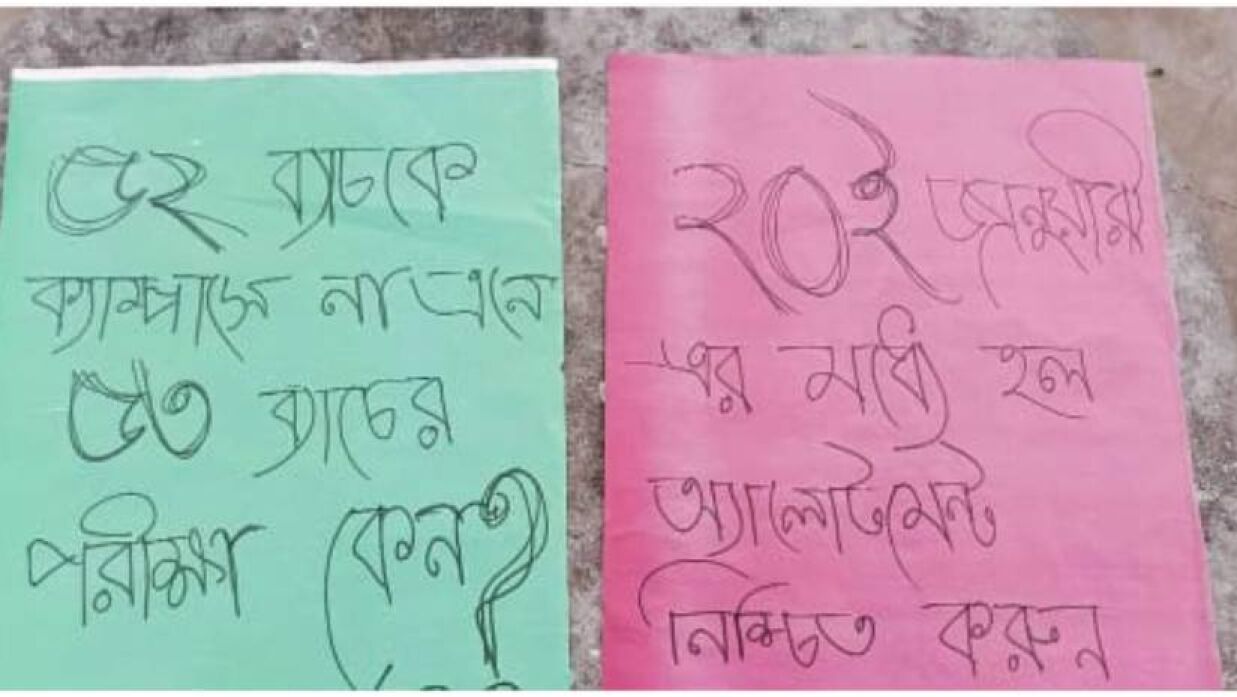 ৫২ ব্যাচকে
ক্যাম্পাসে না এনে
৫৩ ব্যাচের
পরীক্ষা কেন?
২০ই জানুয়ারী
এর মধ্যে হল
অ্যালোটমেন্ট
নিশ্চিত করুন